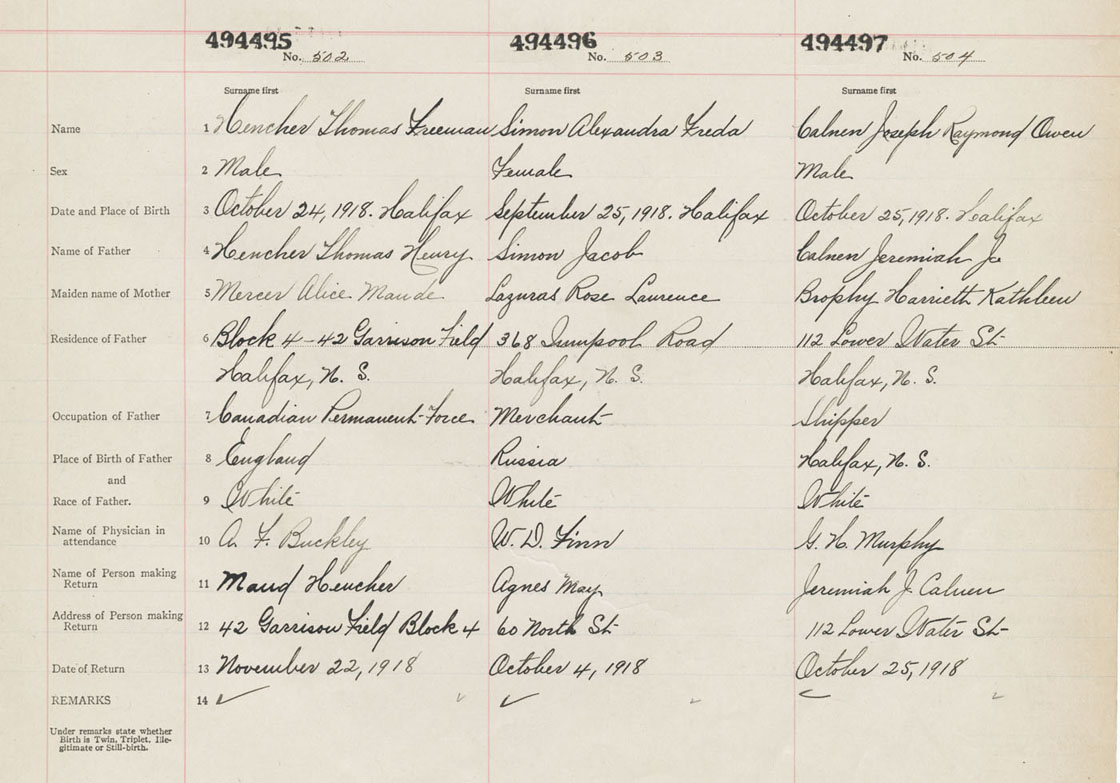 494495 494496 494497
No. 502 No. 503 No. 504
Surname first Surname first Surname first
Name 1 Hencher Thomas Freeman Simon Alexandra Freda Calnen Joseph Raymond Owen
Sex 2 Male Female Male
Date and Place of Birth 3 October 24, 1918. Halifax September 25, 1918. Halifax October 25, 1918. Halifax
Name of Father 4 Hencher Thomas Henry Simon Jacob Calnen Jeremiah
Maiden name of Mother 5 Mercer Alice Maude Lazuras Rose Laurence Brophy Harrieth Kathleen
Residence of Father 6 Block 4 - 42 Garrison Field 368 Road 112 Lower Water St
Halifax, N. S. Halifax, N. S. Halifax, N. S.
Occupation of Father 7 Canadian Permanent Force Merchant Shipper
Place of Birth of Father 8 England Russia Halifax, N. S.
and
Race of Father. 9 White White White
Name of Physician in
attendance 10 A. F. Buckley W. D. Finn G. H. Murphy
Name of Person making
Return 11 Maud Hencher Agnes May Jeremiah J. Calnen
Address of Person making
Return 12 42 Garrison Field Block 4 60 North St 112 Lower Water St
Date of Return 13 November 22, 1918 October 4, 1918 October 25, 1918
REMARKS 14
Under remarks state whether
Birth is Twin, Triplet, Ille-
gitimate or Still-birth.